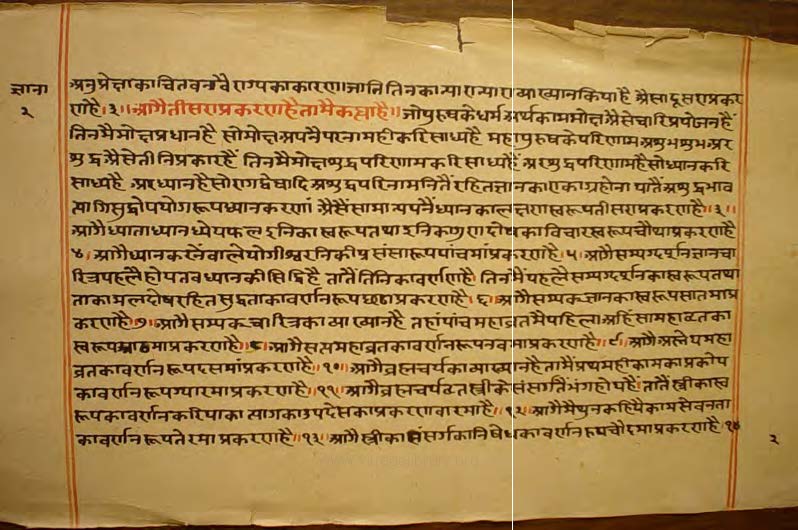 ज्ञाना
२
अनुप्रेक्षाका चितवन वैराग्यका कारण जानि तिनका न्यारा न्यारा व्याख्यान किया है ऐसा दूसरा प्रकर
ण है ॥२॥ आगै तीसरा प्रकरण है तामै कह्या है ॥ जो पुरुषके धर्म अर्थ काम मोक्ष ऐसे चारि प्रयोजन हैं
तिनमै मोक्ष प्रधान है सो मोक्ष अपनै परनामही करि साध्य है महापुरुषके परिणाम अशुभ शुभ अर
शुद्ध ऐसे तीनि प्रकार हैं तिनमै मोक्ष शुद्ध परिणाम करि साध्य है अर शुद्ध परिणाम है सो ध्यान करि
साध्य है अर ध्यान है सो राग द्वेषादि अशुद्ध परिनामनितैं रहित ज्ञानका एकाग्र होना यातैं अशुद्ध भाव
त्यागि सुद्धोपयोग रूप ध्यान करणां ऐसैं सामान्यपनैं ध्यानका लक्षण स्वरूप तीसरा प्रकरण है ॥३॥
आगै ध्याता ध्यान ध्येय फल इनिका स्वरूप तथा इनिके गुण दोषका विचार स्वरूप चौथा प्रकरण है
४। आगै ध्यान करनेंवाले योगीश्वरनिकी प्रसंसा रूप पांचमां प्रकरण है। ५। आगै सम्यग्दर्शन ज्ञान चा
रित्र पहलै होय तब ध्यानकी सिद्धि है तातैं तिनिका वर्णण है। तिनमै पहलै सम्यग्दर्शनका स्वरूप तथा
ताका मल दोष रहित सुद्धताका वर्णन रूप छठा प्रकरण है। ६। आगै सम्यक ज्ञानका स्वरूप सातमा प्र
करण है ॥७॥ आगै सम्यक चारित्रका व्याख्यान है तहां पांच महाव्रतमै पहिला अहिंसा महाव्रतका
स्वरूप आठमा प्रकरण है ॥८॥ आगै सत्य महाव्रतका वर्णन रूप नवमा प्रकरण है ॥९। आगै अस्तेय महा
व्रतका वर्णन रूप दसमां प्रकरण है ॥१०॥ आगै ब्रह्मचर्यका व्याख्यान है तामैं प्रथमही कामका प्रकोप
का वर्णन रूप ग्यारमा प्रकरण है ॥११॥ आगै ब्रह्मचर्य व्रत स्त्रीके संसर्गतै भंग होय है तातैं स्त्रीका स्व
रूपका वर्णन करि याका त्यागका उपदेसका प्रकरण बारमा है ॥१२॥ आगै मैथुन कहियै काम सेवन ता
का वर्णन रूप तेरमा प्रकरण है ॥१३॥ आगै स्त्रीका संसर्गका निषेधका वर्णन रूप चौदमा प्रकरण है १४
२